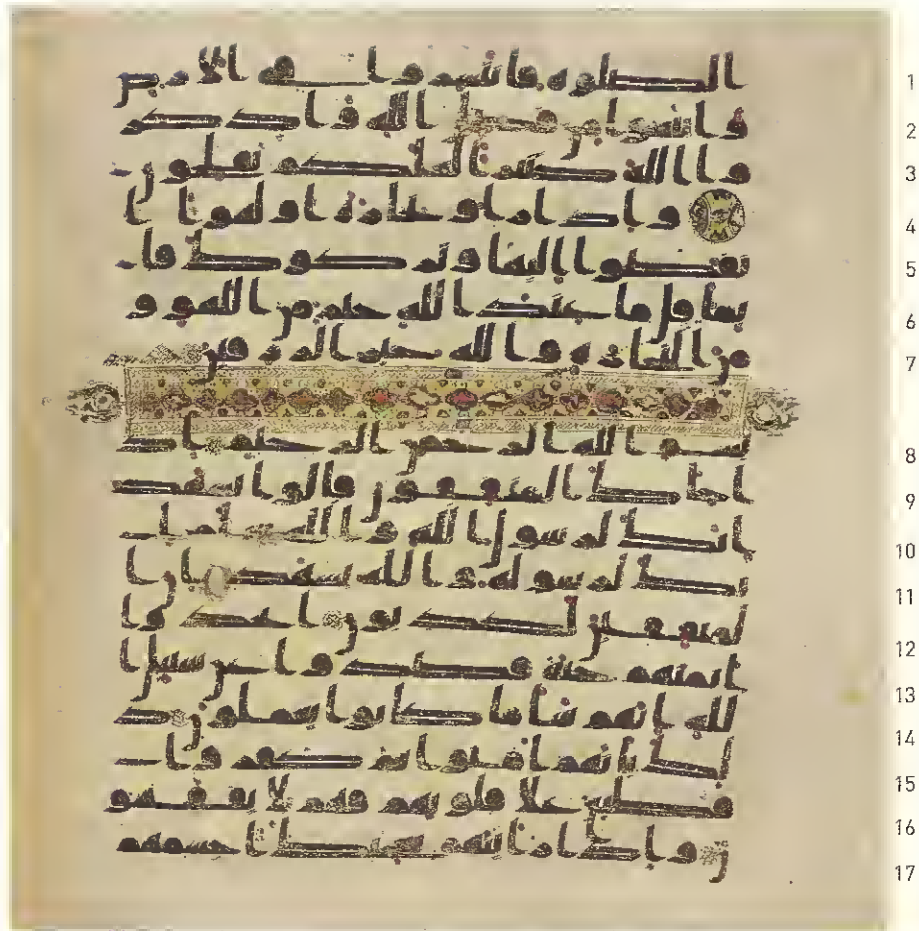 الصلوه فانتشروا في الارض 1
وابتغوا من فضل الله واذكر 2
وا الله كثيرا لعلكم تفلحون 3
واذا راوا تجره او لهوا ا 4
نفضوا اليها وتركوك قا 5
يما قل ما عند الله خير من اللهو و 6
من التجره والله خير الرزقين 7
بسم الله الرحمن الرحيم اذ 8
ا جاك المنفقون قالوا نشهد 9
انك لرسول الله والله يعلم ا 10
نك لرسوله والله يشهد ان ا 11
لمنفقين لكذبون اتخذوا 12
ايمنهم جنه فصدوا عن سبيل ا 13
لله انهم سا ما كانوا يعملون ذ 14
لك بانهم امنوا ثم كفروا 15
فطبع على قلوبهم فهم لا يفقهو 16
ن واذا رايتهم تعجبك اجسمهم 17